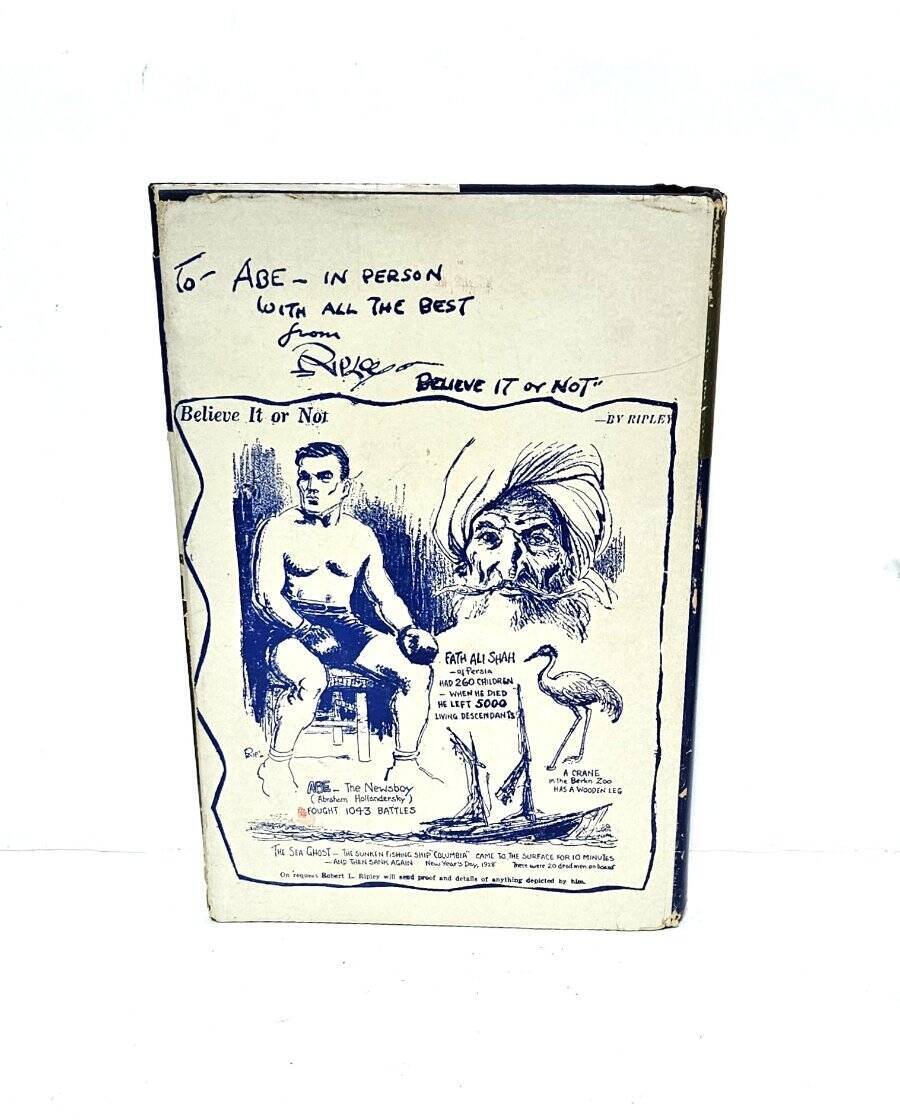 To- ABE - IN PERSON
WITH ALL THE BEST
from
Ripley
BELIEVE IT or NOT"
Believe It or Not
—BY RIPLEY
FATH ALI SHAH
- of Persia
HAD 260 CHILDREN
- WHEN HE DIED
HE LEFT 5000
LIVING DESCENDANTS
A CRANE
in the Berlin Zoo
HAS A WOODEN LEG
RIPL
ABE - The Newsboy
(Abraham Hollandersky)
FOUGHT 1043 BATTLES
THE SEA GHOST - THE SUNKEN FISHING SHIP "COLUMBIA" CAME TO THE SURFACE FOR 10 MINUTES
- AND THEN SANK AGAIN New Year's Day, 1928 There were 20 dead men on board
On request Robert L. Ripley will send proof and details of anything depicted by him.